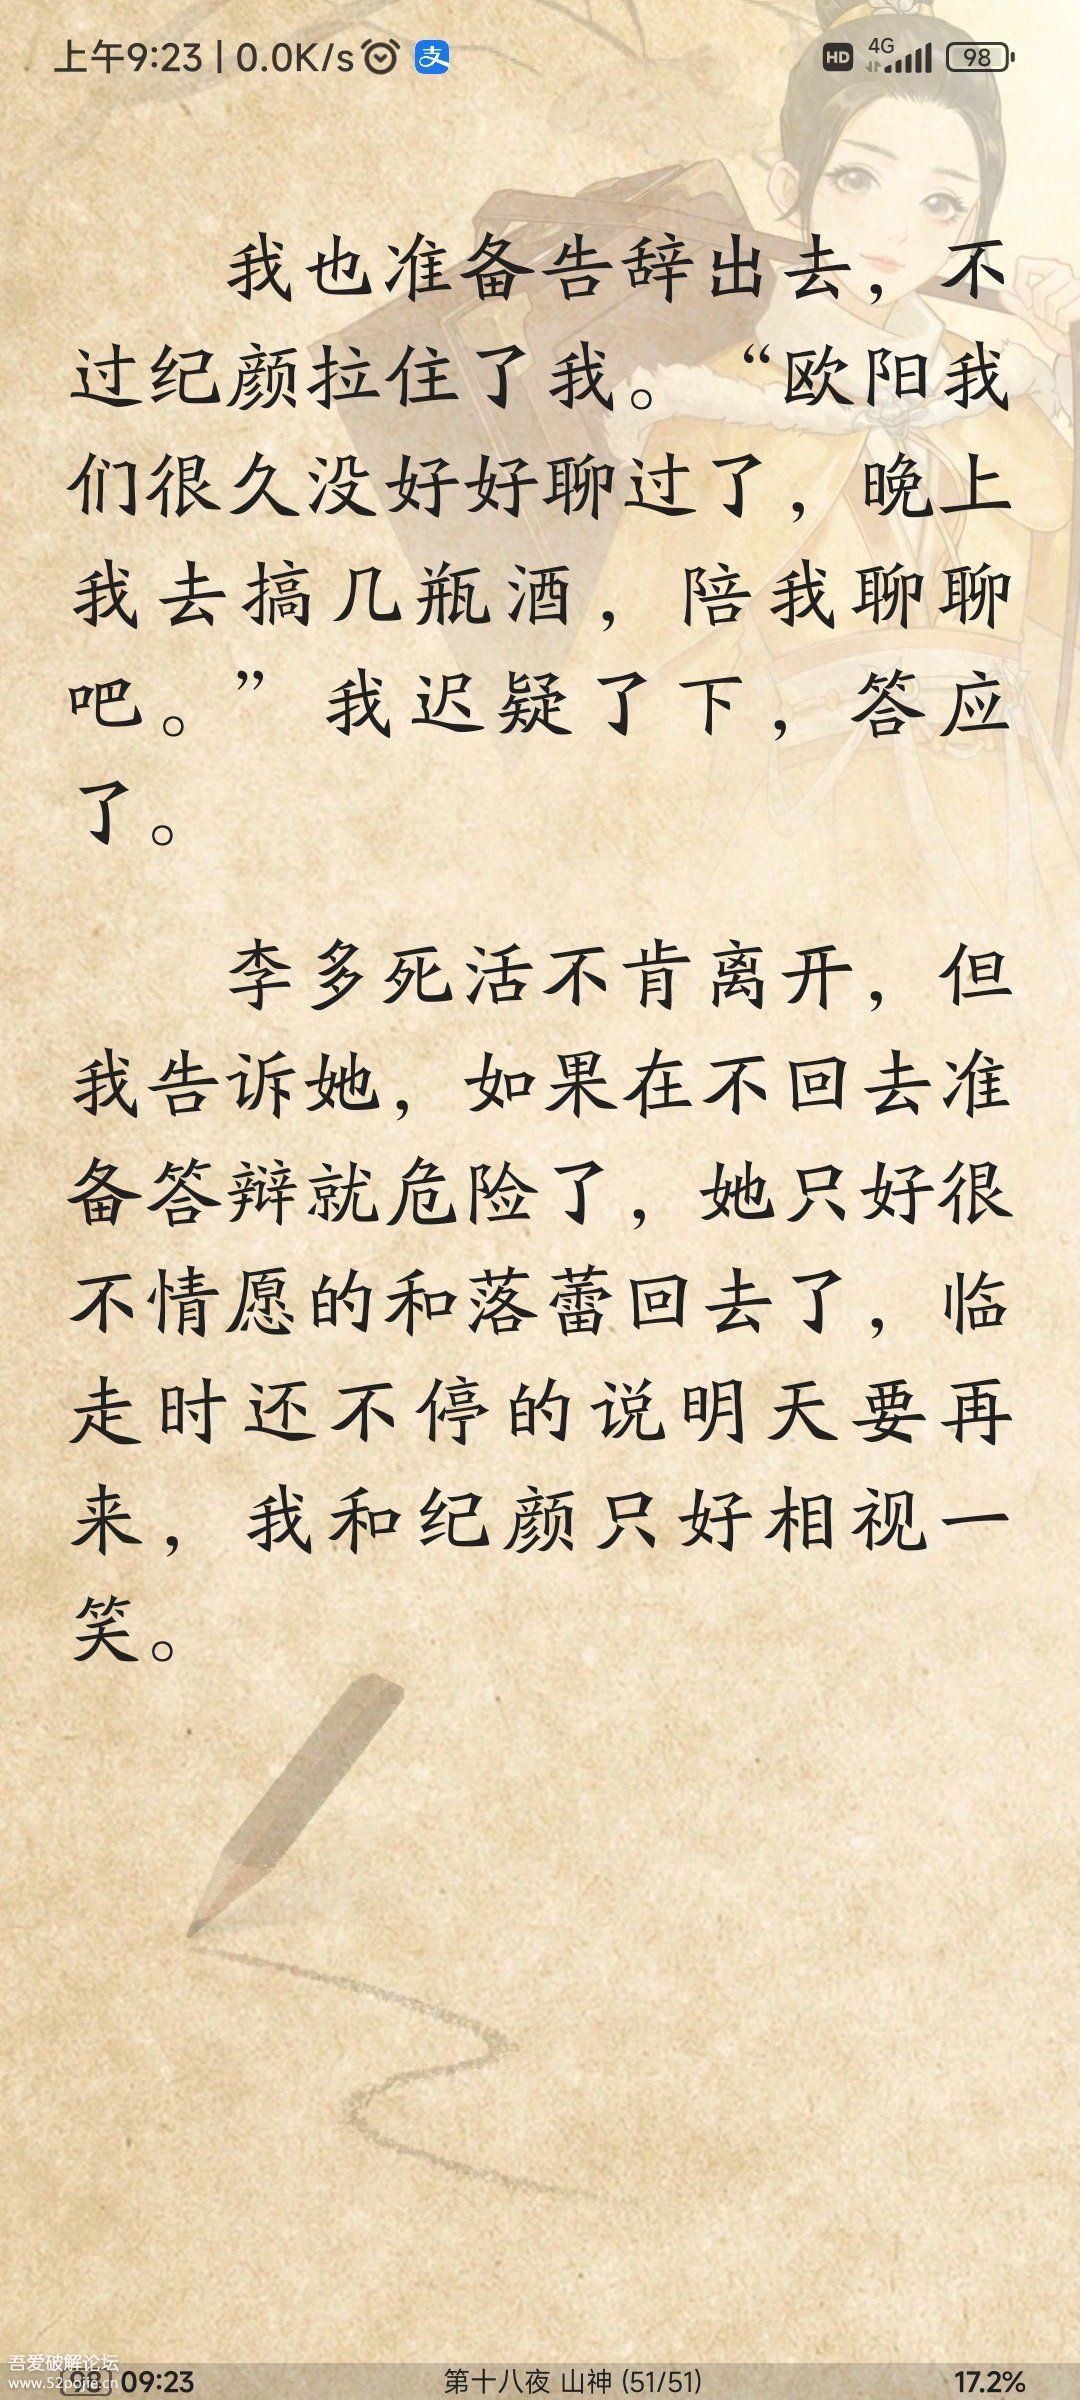 上午9:23 | 0.0K/s 支 HD 4G 98
我也准备告辞出去，不
过纪颜拉住了我。“欧阳我
们很久没好好聊过了，晚上
我去搞几瓶酒，陪我聊聊
吧。” 我迟疑了下，答应
了。
李多死活不肯离开，但
我告诉她，如果在不回去准
备答辩就危险了，她只好很
不情愿的和落蕾回去了，临
走时还不停的说明天要再
来，我和纪颜只好相视一
笑。
吾爱破解论坛
www.52pojie.cn
98 09:23 第十八夜 山神 (51/51) 17.2%